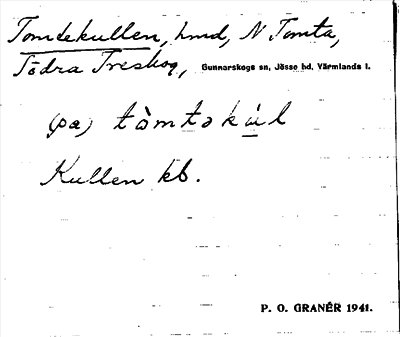 Tomtekullen, hmd, N Tomta,
Södra Treskog, Gunnarskogs sn, Jösse hd, Värmlands l.
(på) tòmtəkùl
Kullen kb.
P. O. GRANÉR 1941.